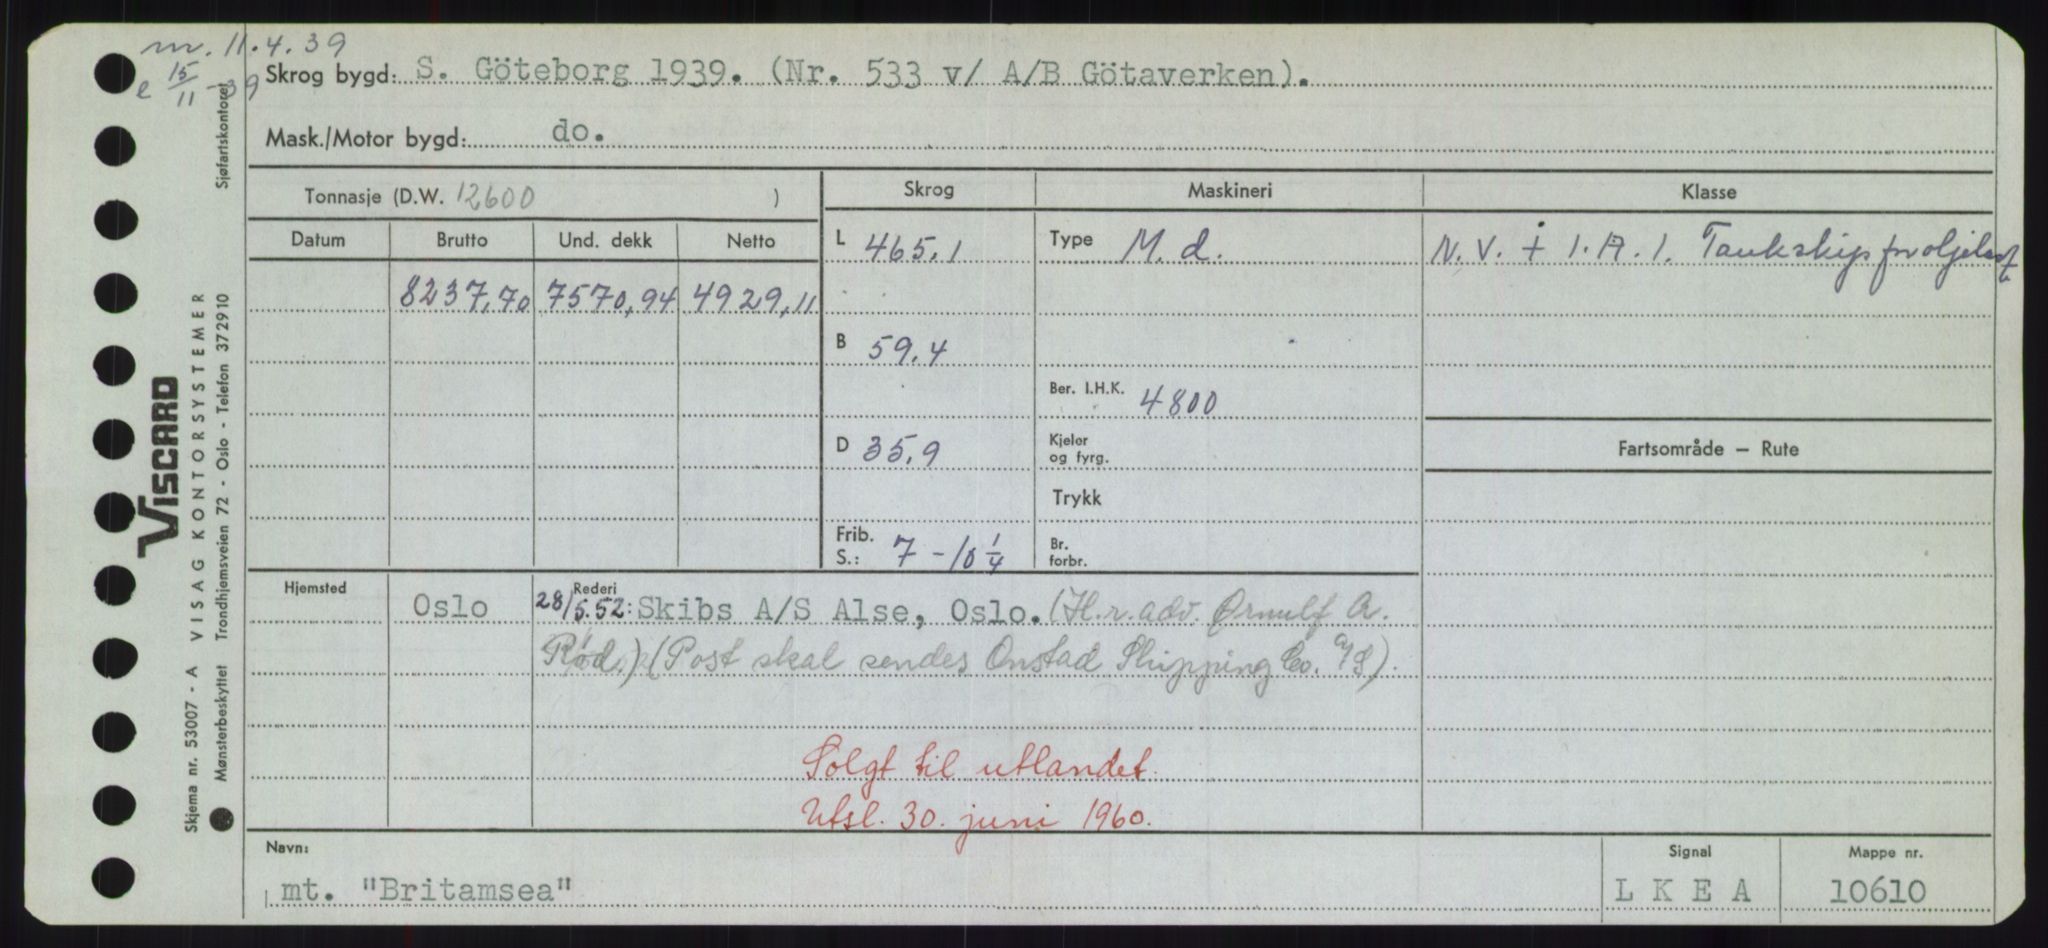 m. 11.4.39
e 15/11-39
Skrog bygd: S. Göteborg 1939. (Nr. 533 v/ A/B Götaverken).
Mask./Motor bygd: do.
Tonnasje (D.W. 12600 )
Skrog Maskineri Klasse
Datum Brutto Und. dekk Netto
L 465,1 Type M. d. N.V. + 1.A.1. Tankskip for oljelast
8237,70 7570,94 4929,11
B 59,4
Ber. I.H.K. 4800
D 35,9 Kjeler og fyrg. Fartsområde — Rute
Trykk
Frib. S.: 7 - 10 1/4 Br. forbr.
Hjemsted Rederi
Oslo 28/5.52: Skibs A/S Alse, Oslo. (H.r.adv. Ørnulf A.
Rød.) (Post skal sendes Onstad Shipping Co. A/S).
Solgt til utlandet.
Utsl. 30. juni 1960.
Navn: Signal Mappe nr.
mt. "Britamsea" L K E A 10610
VISCARD
VISAG KONTORSYSTEMER
Skjema nr. 53007 - A
Mønsterbeskyttet Trondhjemsveien 72 - Oslo - Telefon 372910
Sjøfartskontoret